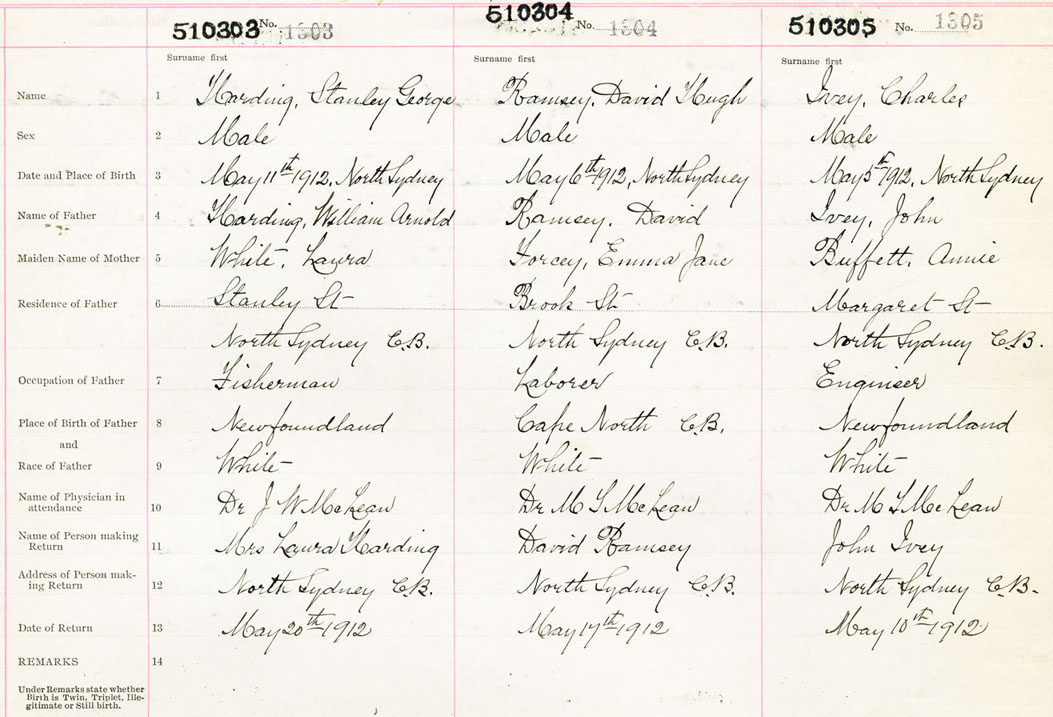 510303 No. 1303 510304 No. 1304 510305 No. 1305
Surname first Surname first Surname first
Name 1 Harding, Stanley George Ramsey, David Hugh Ivey, Charles
Sex 2 Male Male Male
Date and Place of Birth 3 May 11th 1912, North Sydney May 6th 1912, North Sydney May 5th 1912, North Sydney
Name of Father 4 Harding, William Arnold Ramsey, David Ivey, John
Maiden Name of Mother 5 White, Laura Forcey, Emma Jane Buffett, Annie
Residence of Father 6 Stanley St Brook St Margaret St
North Sydney C.B. North Sydney C.B. North Sydney C.B.
Occupation of Father 7 Fisherman Laborer Engineer
Place of Birth of Father 8 Newfoundland Cape North C.B. Newfoundland
and
Race of Father 9 White White White
Name of Physician in
attendance 10 Dr J W McLean Dr M T McLean Dr M T McLean
Name of Person making
Return 11 Mrs Laura Harding David Ramsey John Ivey
Address of Person mak-
ing Return 12 North Sydney C.B. North Sydney C.B. North Sydney C.B.
Date of Return 13 May 20th 1912 May 17th 1912 May 10th 1912
REMARKS 14
Under Remarks state whether
Birth is Twin, Triplet, Ille-
gitimate or Still birth.